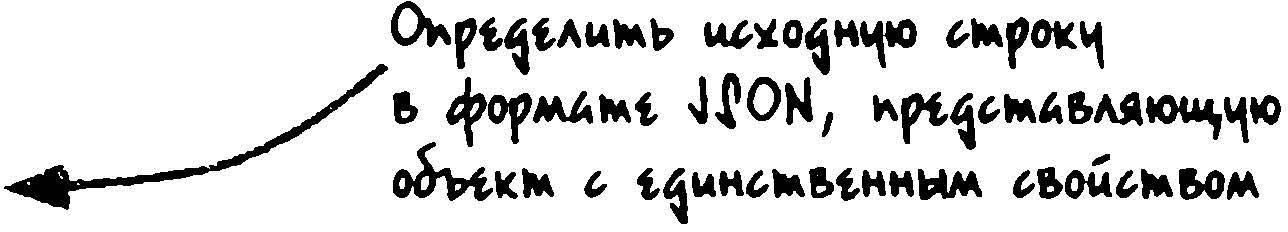 Определить исходную строку
в формате JSON, представляющую
объект с единственным свойством